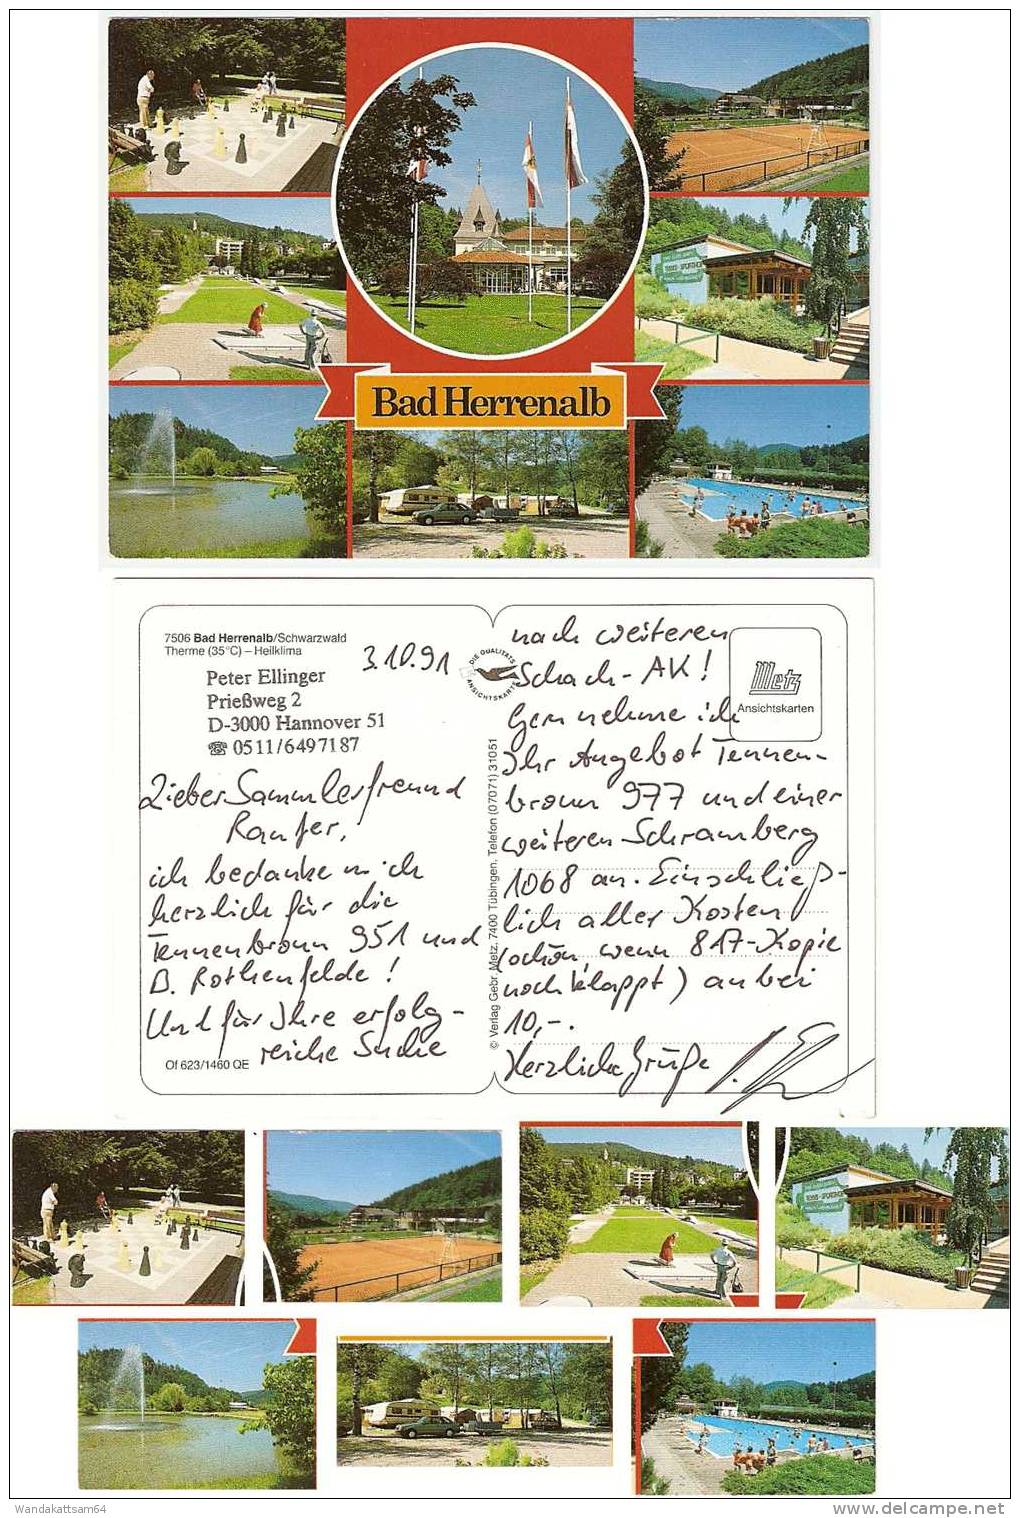 Bad Herrenalb
7506 Bad Herrenalb/Schwarzwald
Therme (35°C) – Heilklima
3.10.91
Peter Ellinger
Prießweg 2
D-3000 Hannover 51
☎ 0511/6497187
Lieber Sammlerfreund
Ranfer,
ich bedanke mich
herzlich für die
Tennenbronn 951 und
B. Rothenfelde!
Und für Ihre erfolg-
reiche Suche
Of 623/1460 QE
DIE QUALITÄTS
ANSICHTSKARTE
© Verlag Gebr. Metz, 7400 Tübingen, Telefon (07071) 31051
nach weiteren
Schach-AK!
Gern nehme ich
Ihr Angebot Tennen-
bronn 977 und einer
weiteren Schramberg
1068 an. Einschließ-
lich aller Kosten
(schön, wenn 817-Kopie
noch klappt) anbei
10,-.
Herzliche Grüße
Metz
Ansichtskarten
Wandakattsam64
www.delcampe.net